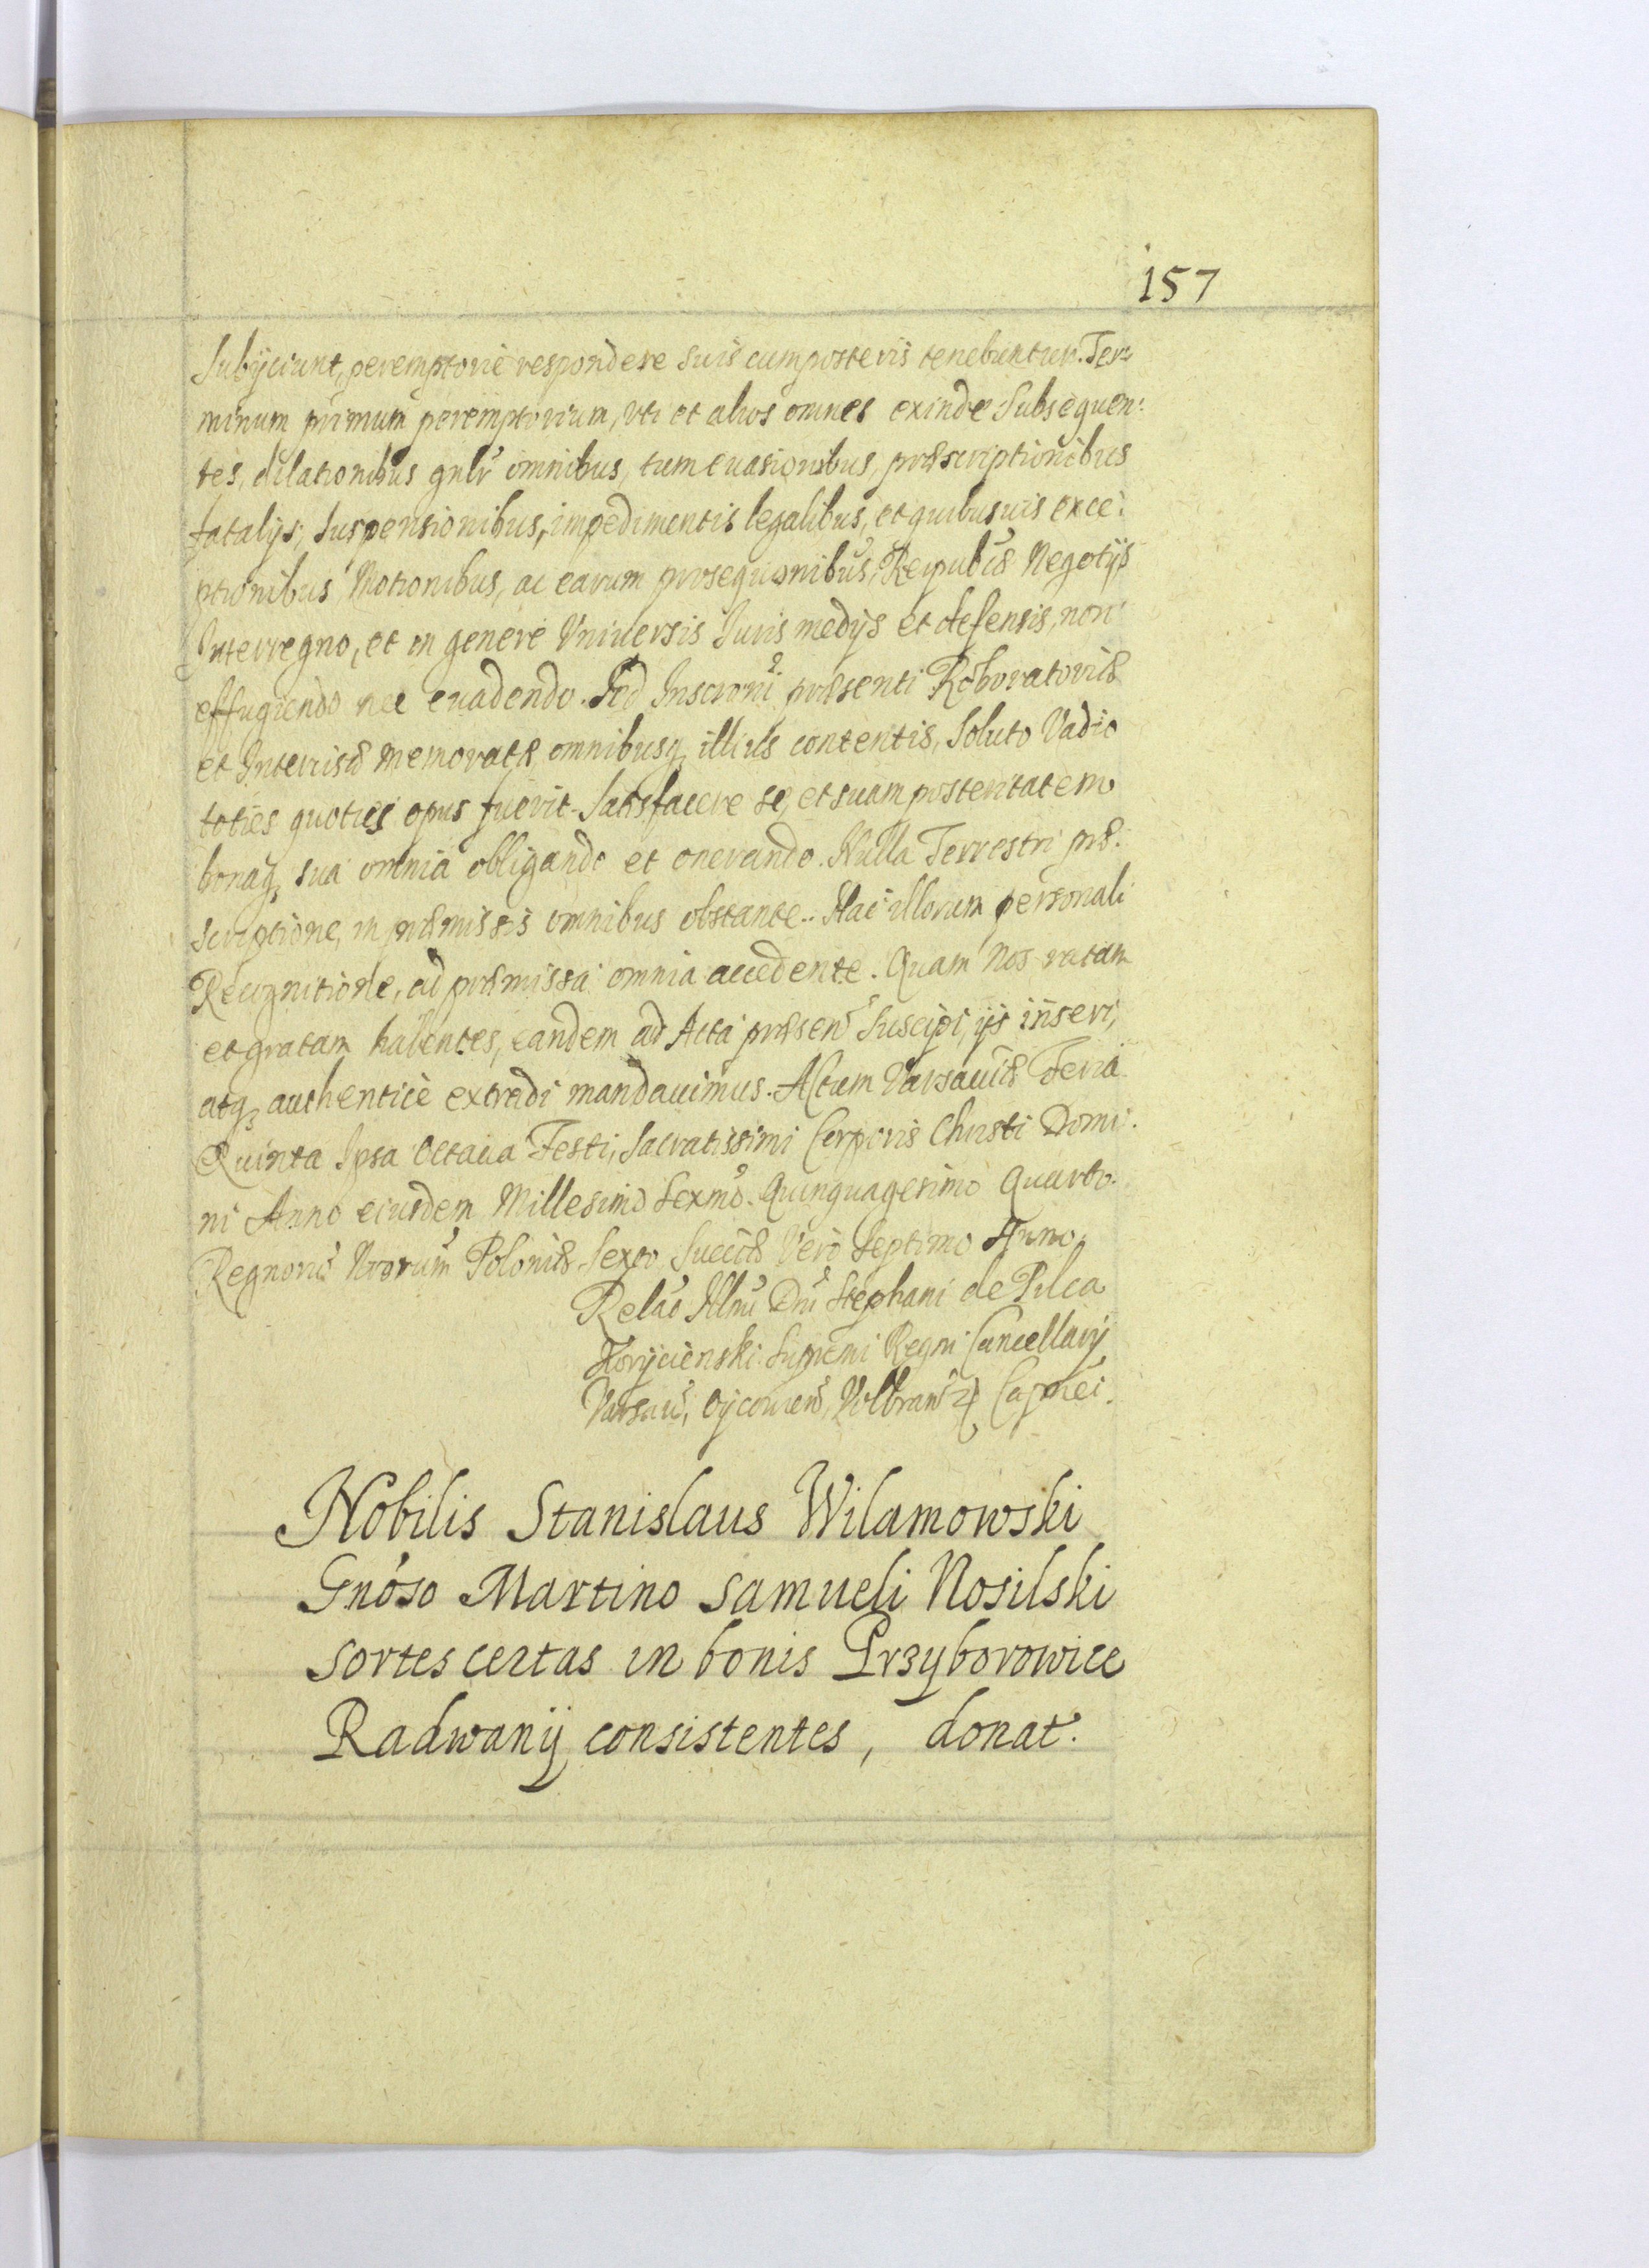 157
Subÿciunt, peremptoriè respondere suis cum posteris tenebuntur. Ter-
minum primum peremptorium, vti et alios omnes exinde Subsequen:
tes, dilationibus gnlr omnibus, tum euasionibus, præscriptionibus
fatalÿs, Suspensionibus, impedimentis legalibus, et quibusuis exce:
ptionibus Motionibus, ac earum prosequonibus, Reipublcæ Negotÿs
Interregno, et in genere Vniversis Juris medÿs et defensis, non
effugiendo nec evadendo. Sed Inscrioni præsenti Roboratoriæ
et Intercisæ memoratæ omnibusq, illius contentis, Soluto Vadio
toties quoties opus fuerit Satisfacere se, et suam posteritatem
bonaq, sua omnia obligando et onerando. Nulla Terrestri præ:
scriptione, in præmissis omnibus obstante. Hac illorum personali
Recognitione, ad præmissa omnia accedente. Quam Nos ratam
et gratam habentes, eandem ad Acta præsen Suscipi, ÿs inseri,
atq, authenticè extradi mandauimus. Actum Varsauiæ Feria
Quinta Ipsa Octaua Festi, Sacratissimi Corporis Christi Domi:
ni Anno eiusdem Millesimo Sexmo. Quinquagesimo Quarto.
Regnoru Nrorum Poloniæ Sexto Sueciæ Verò Septimo Anno.
Relao Illmi Dni Stephani de Pilca
Korÿcienski Supremi Regni Cancellarÿ
Varsau, Oÿcouien, Volbram Capnei.
Nobilis Stanislaus Wilamowski
Gnoso Martino Samueli Nosilski
sortes certas in bonis Przyborowice
Radwanÿ consistentes, donat.